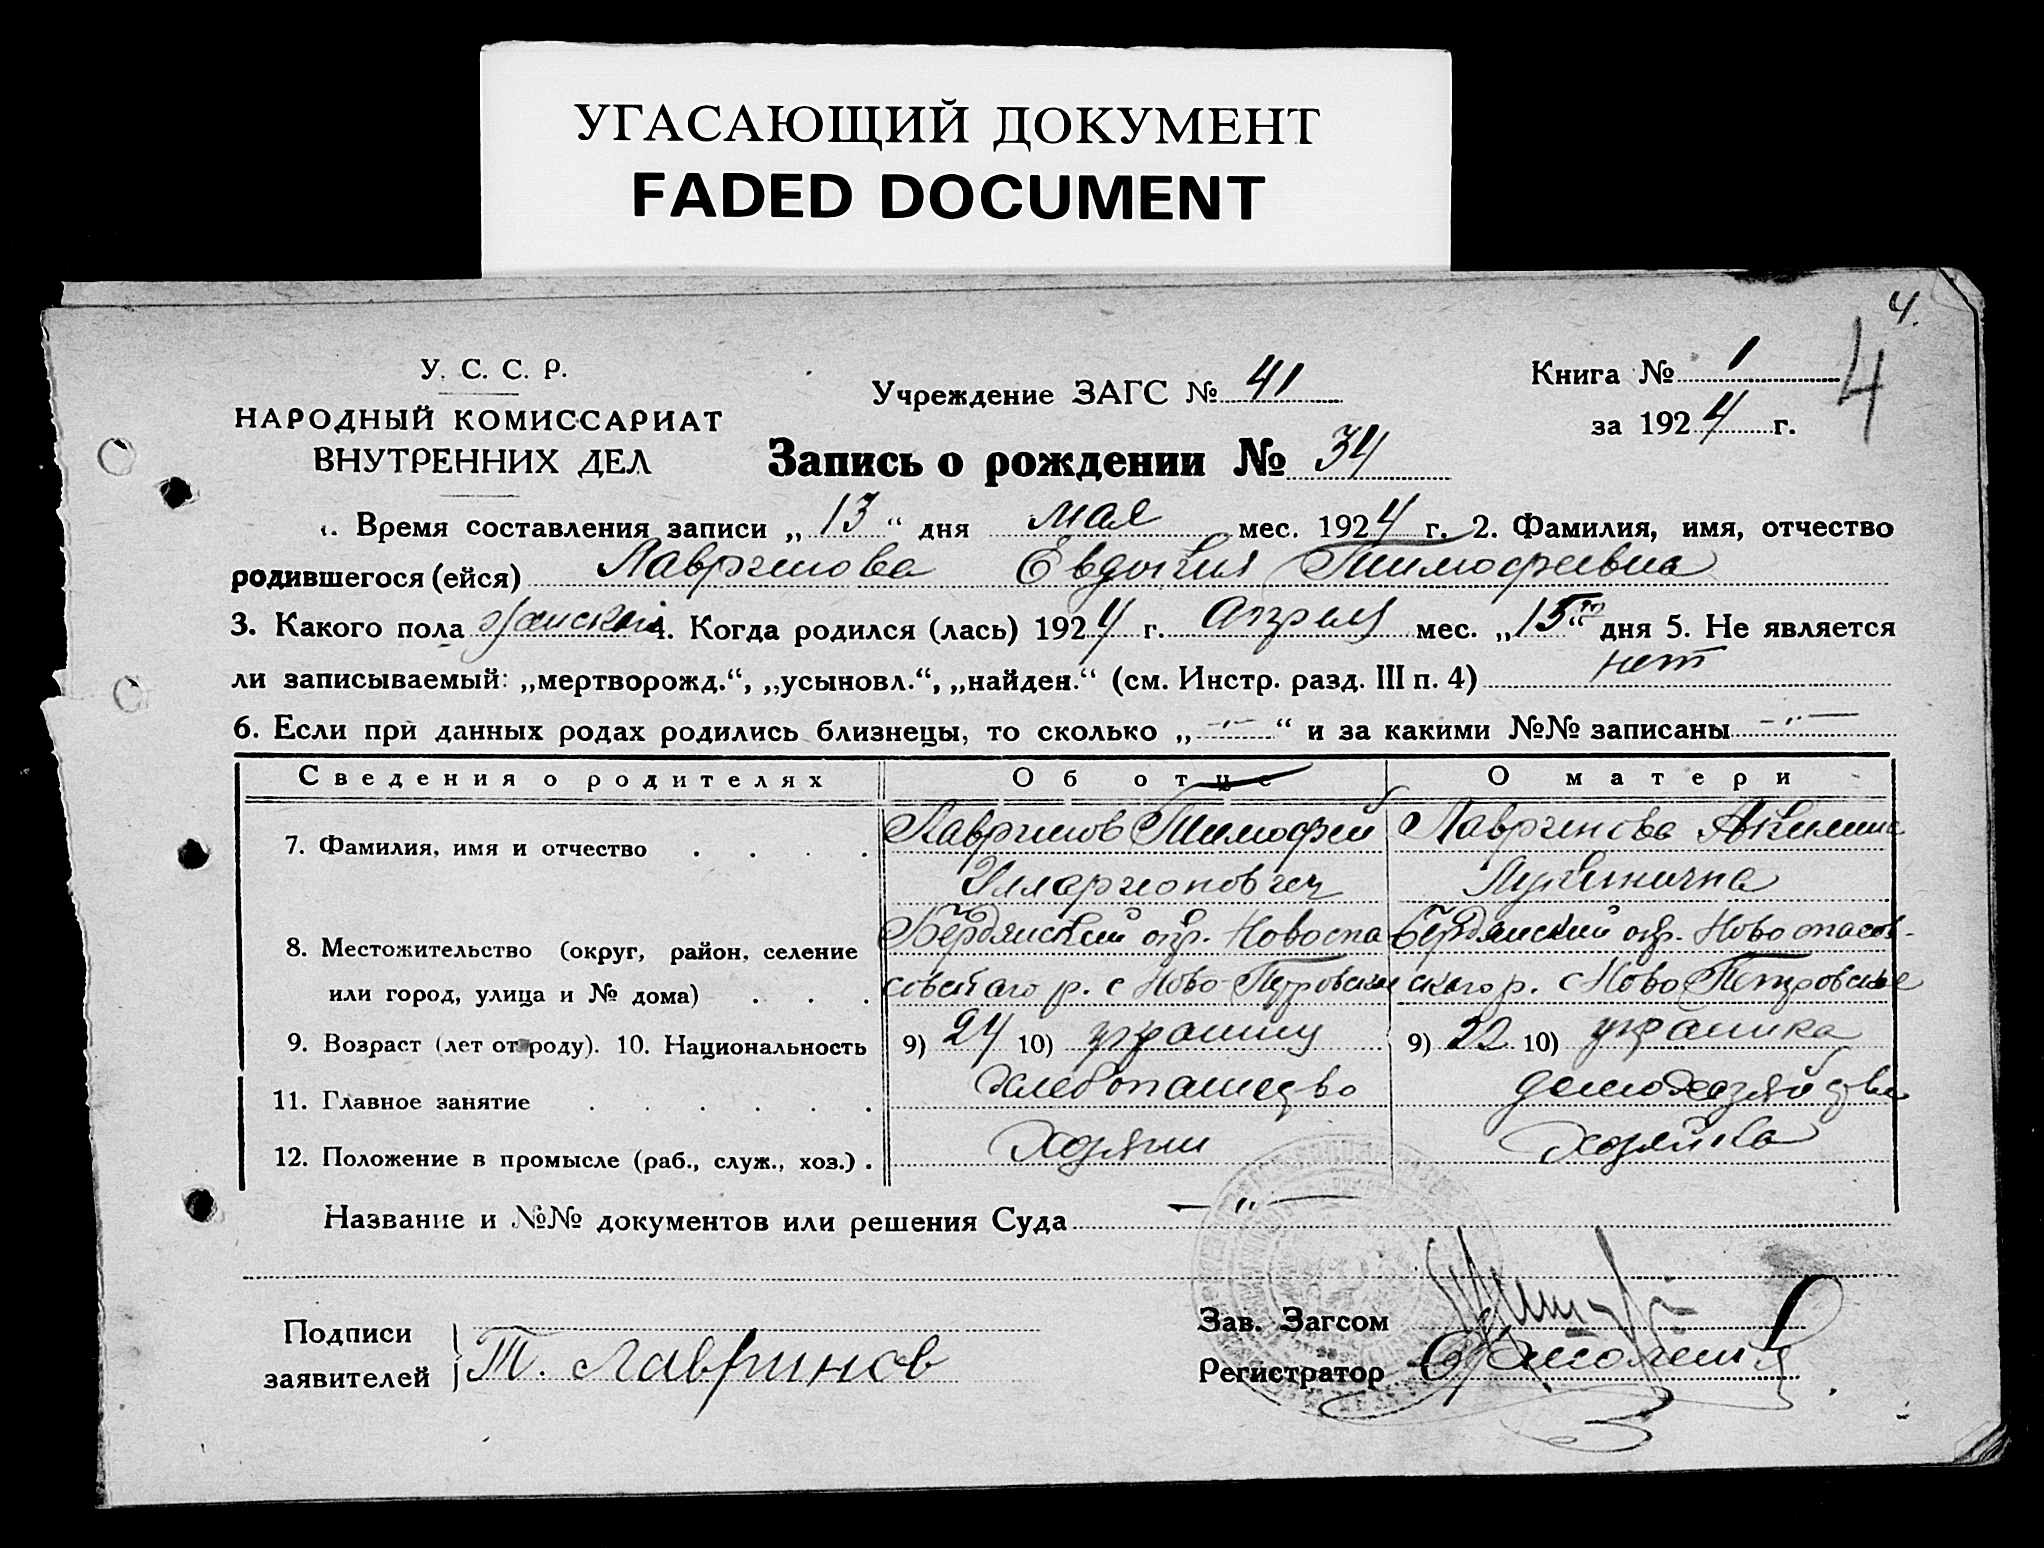 УГАСАЮЩИЙ ДОКУМЕНТ
FADED DOCUMENT
4.
4
У. С. С. Р.
НАРОДНЫЙ КОМИССАРИАТ
ВНУТРЕННИХ ДЕЛ
Учреждение ЗАГС № 41
Книга № 1
за 1924 г.
Запись о рождении № 34
1. Время составления записи „13“ дня мая мес. 1924 г. 2. Фамилия, имя, отчество
родившегося (ейся) Лавринова Евдокия Тимофеевна
3. Какого пола женский 4. Когда родился (лась) 1924 г. Апреля мес. „15го“ дня 5. Не является
ли записываемый: „мертворожд.“, „усыновл.“, „найден.“ (см. Инстр. разд. III п. 4) нет
6. Если при данных родах родились близнецы, то сколько „-„-“ и за какими №№ записаны -„-
Сведения о родителях Об отце О матери
7. Фамилия, имя и отчество Лавринов Тимофей Лавринова Акилина
Илларионович Лукинична
8. Местожительство (округ, район, селение Бердянский окр. Новоспа Бердянский окр. Новоспасов-
или город, улица и № дома) совского р. с Ново-Петровское ского р. с Ново Петровское
9. Возраст (лет от роду). 10. Национальность 9) 24 10) украинц 9) 22 10) украинка
11. Главное занятие хлебопашество домохозяйство
12. Положение в промысле (раб., служ., хоз.) хозяин хозяйка
Название и №№ документов или решения Суда -„-
Подписи
заявителей Т. Лавринов
Зав. Загсом
Регистратор